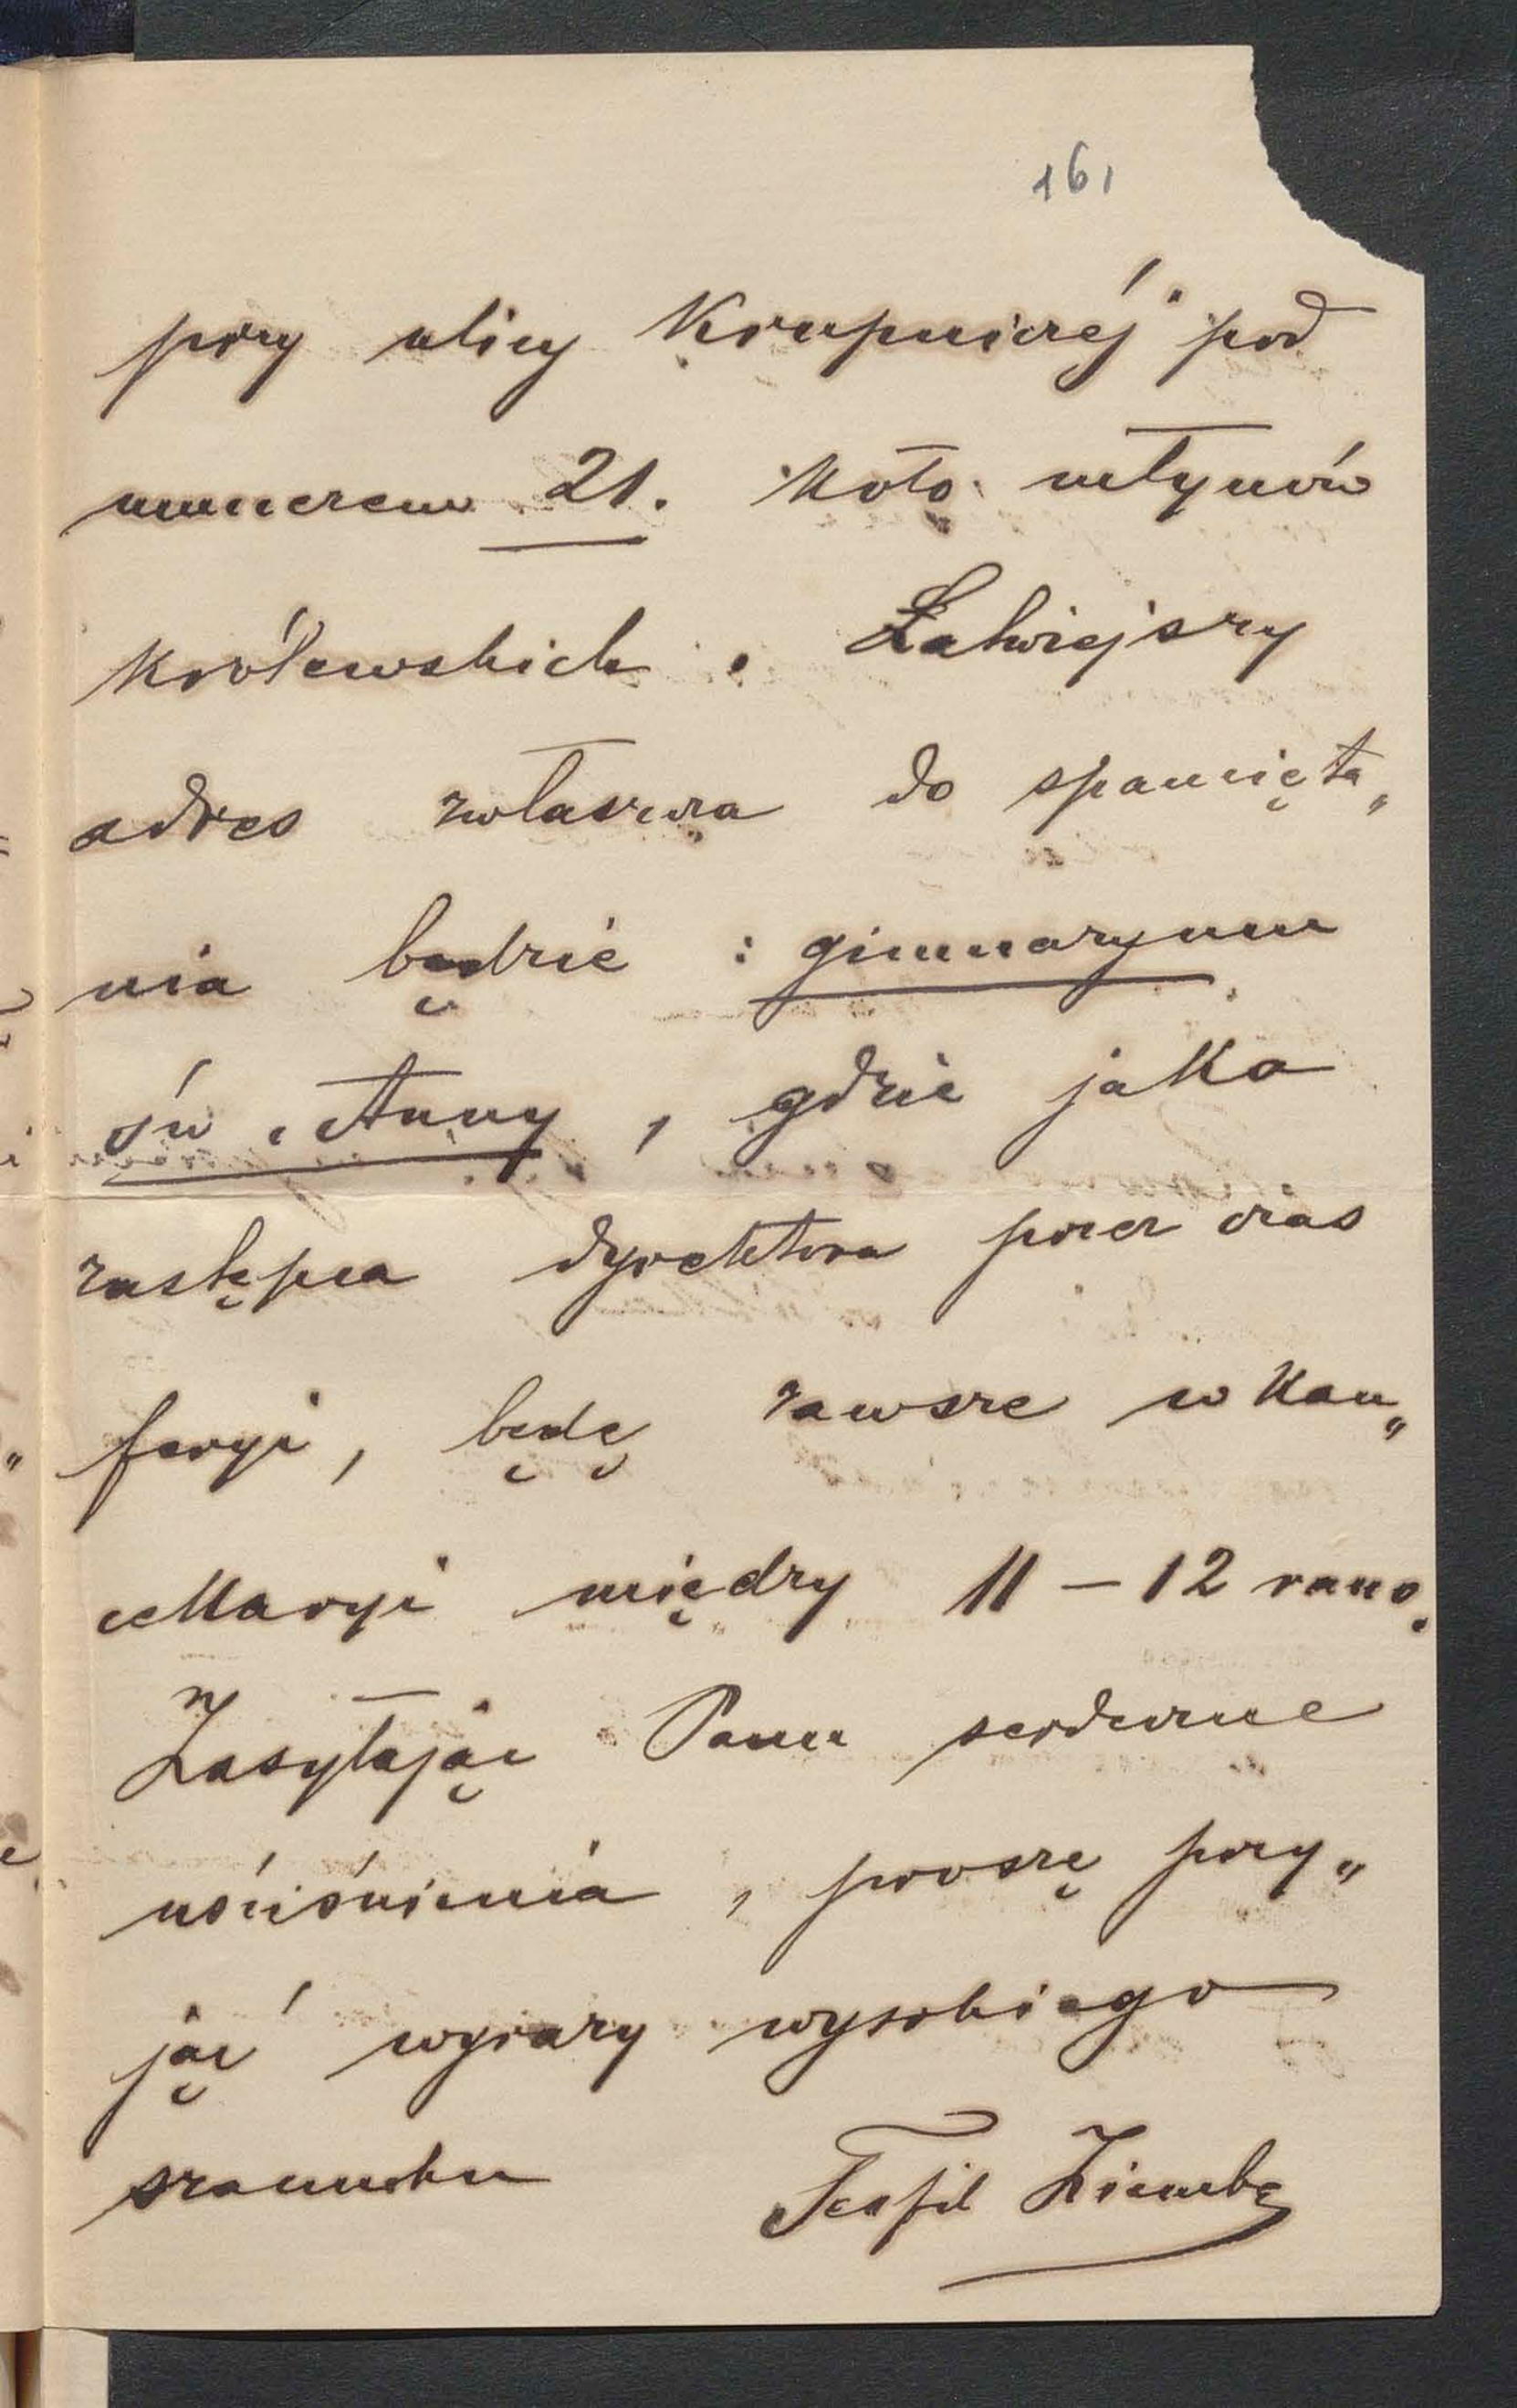 161
przy ulicy Krupniczéj pod
numerem 21. koło młynów
królewskich. Łatwiejszy
adres zwłaszcza do spamięta„
nia będzie : gimnazyum
św. Anny, gdzie jako
zastępca dyrektora przez czas
feryi, będę zawsze w kan„
cellaryi między 11 – 12 rano.
Zasyłając Panu serdeczne
uściśnienia, proszę przy„
jąć wyrazy wysokiego
szacunku Teofil Ziemba